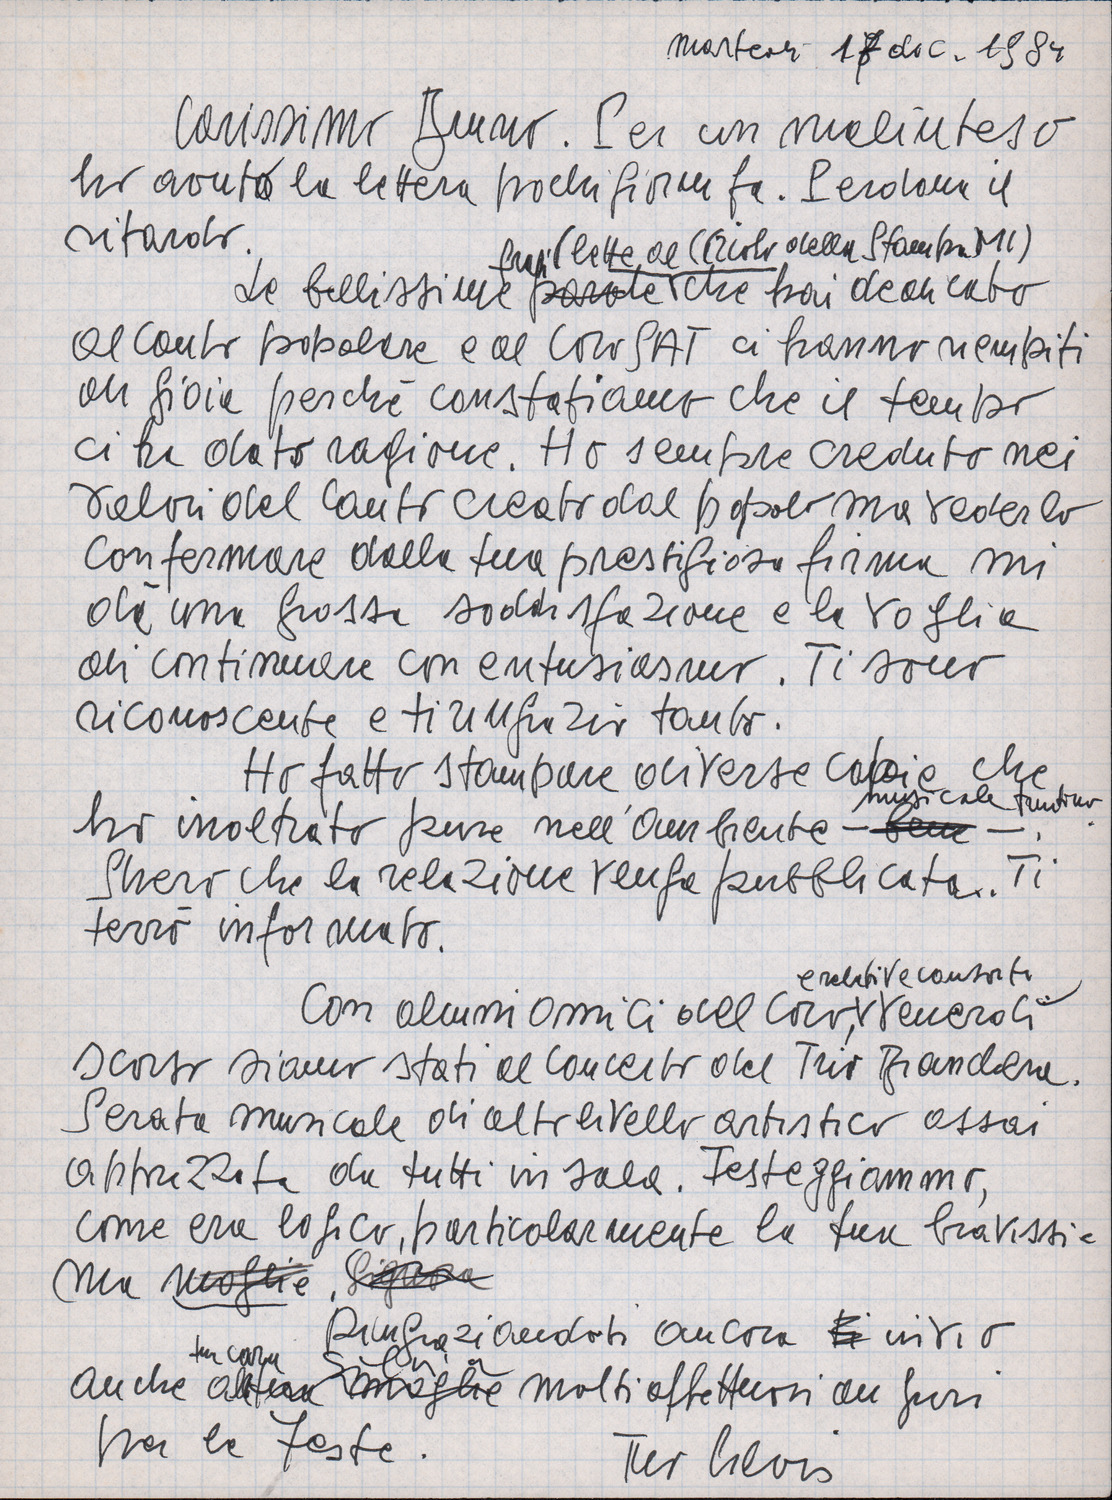 martedì 17 dic. 1984
Carissimo Bruno. Per un malinteso
ho avuto la lettera pochi giorni fa. Perdona il
ritardo.
frasi (lette al Circolo della Stampa MI)
Le bellissime parole che hai dedicato
al Canto popolare e al Coro SAT ci hanno riempiti
di gioia perché constatiamo che il tempo
ci ha dato ragione. Ho sempre creduto nei
valori del Canto creato dal popolo ma vederlo
confermare dalla tua prestigiosa firma mi
dà una grossa soddisfazione e la voglia
di continuare con entusiasmo. Ti sono
riconoscente e ti ringrazio tanto.
Ho fatto stampare diverse copie che
musicale trentino
ho inoltrato pure nell'ambiente — bene —.
Spero che la relazione venga pubblicata... Ti
terrò informato.
e relative consorti
Con alcuni Amici del Coro, Venerdì
scorso siamo stati al Concerto del Trio
Serata musicale di alto livello artistico assai
apprezzata da tutti in sala. Festeggiammo,
come era logico, particolarmente la tua bravissi=
ma moglie, Signora
Ringraziandoti ancora ti invio
tua cara
anche alla tua moglie molti affettuosi auguri
per le Feste.
Tuo